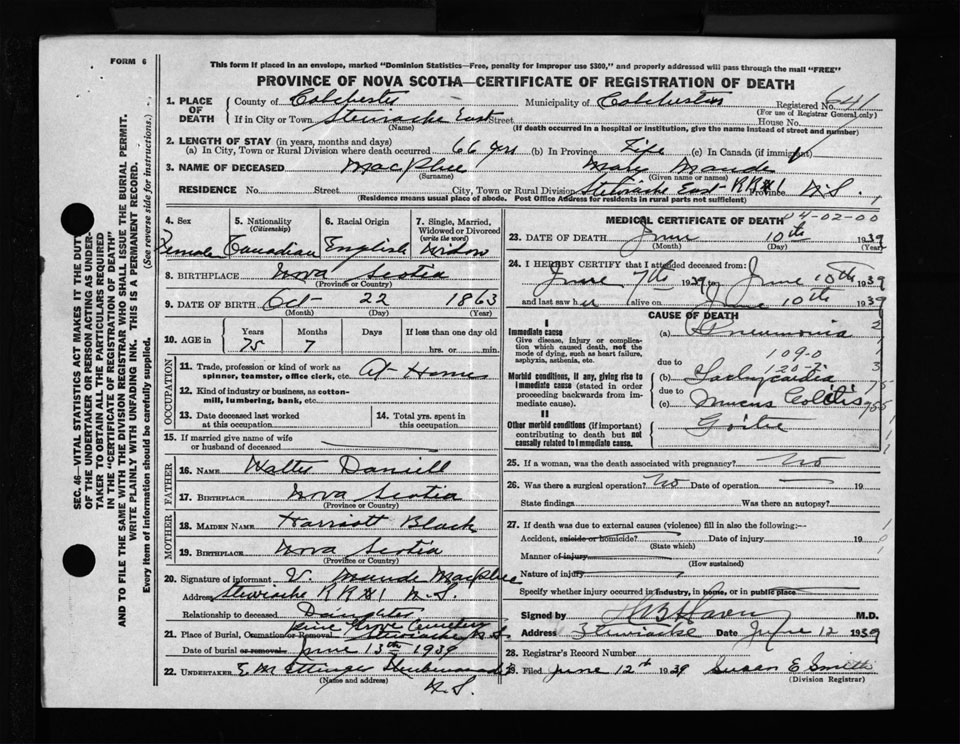 FORM 6
This form if placed in an envelope, marked "Dominion Statistics—Free, penalty for improper use $300," and properly addressed will pass through the mail "FREE"
PROVINCE OF NOVA SCOTIA—CERTIFICATE OF REGISTRATION OF DEATH
SEC. 46—VITAL STATISTICS ACT MAKES IT THE DUTY
OF THE UNDERTAKER OR PERSON ACTING AS UNDER-
TAKER TO OBTAIN ALL THE PARTICULARS REQUIRED
IN THE "CERTIFICATE OF REGISTRATION OF DEATH"
AND TO FILE THE SAME WITH THE DIVISION REGISTRAR WHO SHALL ISSUE THE BURIAL PERMIT.
WRITE PLAINLY WITH UNFADING INK. THIS IS A PERMANENT RECORD.
Every item of Information should be carefully supplied. (See reverse side for instructions.)
1. PLACE OF DEATH
County of Colchester Municipality of Colchester Registered No. 641
(For use of Registrar General only)
If in City or Town Stewiacke East Street House No.
(Name) (If death occurred in a hospital or institution, give the name instead of street and number)
2. LENGTH OF STAY (in years, months and days)
(a) In City, Town or Rural Division where death occurred 66 yrs (b) In Province Life (c) In Canada (if immigrant)
3. NAME OF DECEASED MacPhee Mary Maude
(Surname) (Given name or names)
RESIDENCE No. Street City, Town or Rural Division Stewiacke East RR#1 Province N.S.
(Residence means usual place of abode. Post Office Address for residents in rural parts not sufficient)
4. Sex Female
5. Nationality (Citizenship) Canadian
6. Racial Origin English
7. Single, Married, Widowed or Divorced (write the word) Widow
8. BIRTHPLACE Nova Scotia
(Province or Country)
9. DATE OF BIRTH Oct 22 1863
(Month) (Day) (Year)
10. AGE in Years Months Days If less than one day old
75 7 hrs. or min.
OCCUPATION
11. Trade, profession or kind of work as spinner, teamster, office clerk, etc. At Home
12. Kind of industry or business, as cotton-mill, lumbering, bank, etc.
13. Date deceased last worked at this occupation
14. Total yrs. spent in this occupation
15. If married give name of wife or husband of deceased
FATHER
16. NAME Walter Daniell
17. BIRTHPLACE Nova Scotia
(Province or Country)
MOTHER
18. MAIDEN NAME Harriott Black
19. BIRTHPLACE Nova Scotia
(Province or Country)
20. Signature of informant V. Maude MacPhee
Address Stewiacke RR#1 N.S.
Relationship to deceased Daughter
21. Place of Burial, Cremation or Removal Pine Grove Cemetery Stewiacke N.S.
Date of burial or removal June 13th 1939
22. UNDERTAKER E. M. Ettinger Shubenacadie
N.S.
(Name and address)
MEDICAL CERTIFICATE OF DEATH 04-02-00
23. DATE OF DEATH June 10th 1939
(Month) (Day) (Year)
24. I HEREBY CERTIFY that I attended deceased from:
June 7th 1939 to June 10th 1939
and last saw her alive on June 10th 1939
CAUSE OF DEATH
I
Immediate cause
Give disease, injury or complication which caused death, not the mode of dying, such as heart failure, asphyxia, asthenia, etc.
(a) Pneumonia
109-0
due to
120-2
Morbid conditions, if any, giving rise to immediate cause (stated in order proceeding backwards from immediate cause).
(b) Tachycardia
due to
(c) Mucus Colitis
II
Other morbid conditions (if important) contributing to death but not causally related to immediate cause.
Goitre
25. If a woman, was the death associated with pregnancy? No
26. Was there a surgical operation? No Date of operation 19
State findings Was there an autopsy?
27. If death was due to external causes (violence) fill in also the following:—
Accident, suicide or homicide? Date of injury 19
(State which)
Manner of injury
(How sustained)
Nature of injury
Specify whether injury occurred in industry, in home, or in public place
Signed by M.D.
Address Stewiacke Date June 12 1939
28. Registrar's Record Number
29. Filed June 12th 1939 Susan E. Smith
(Division Registrar)